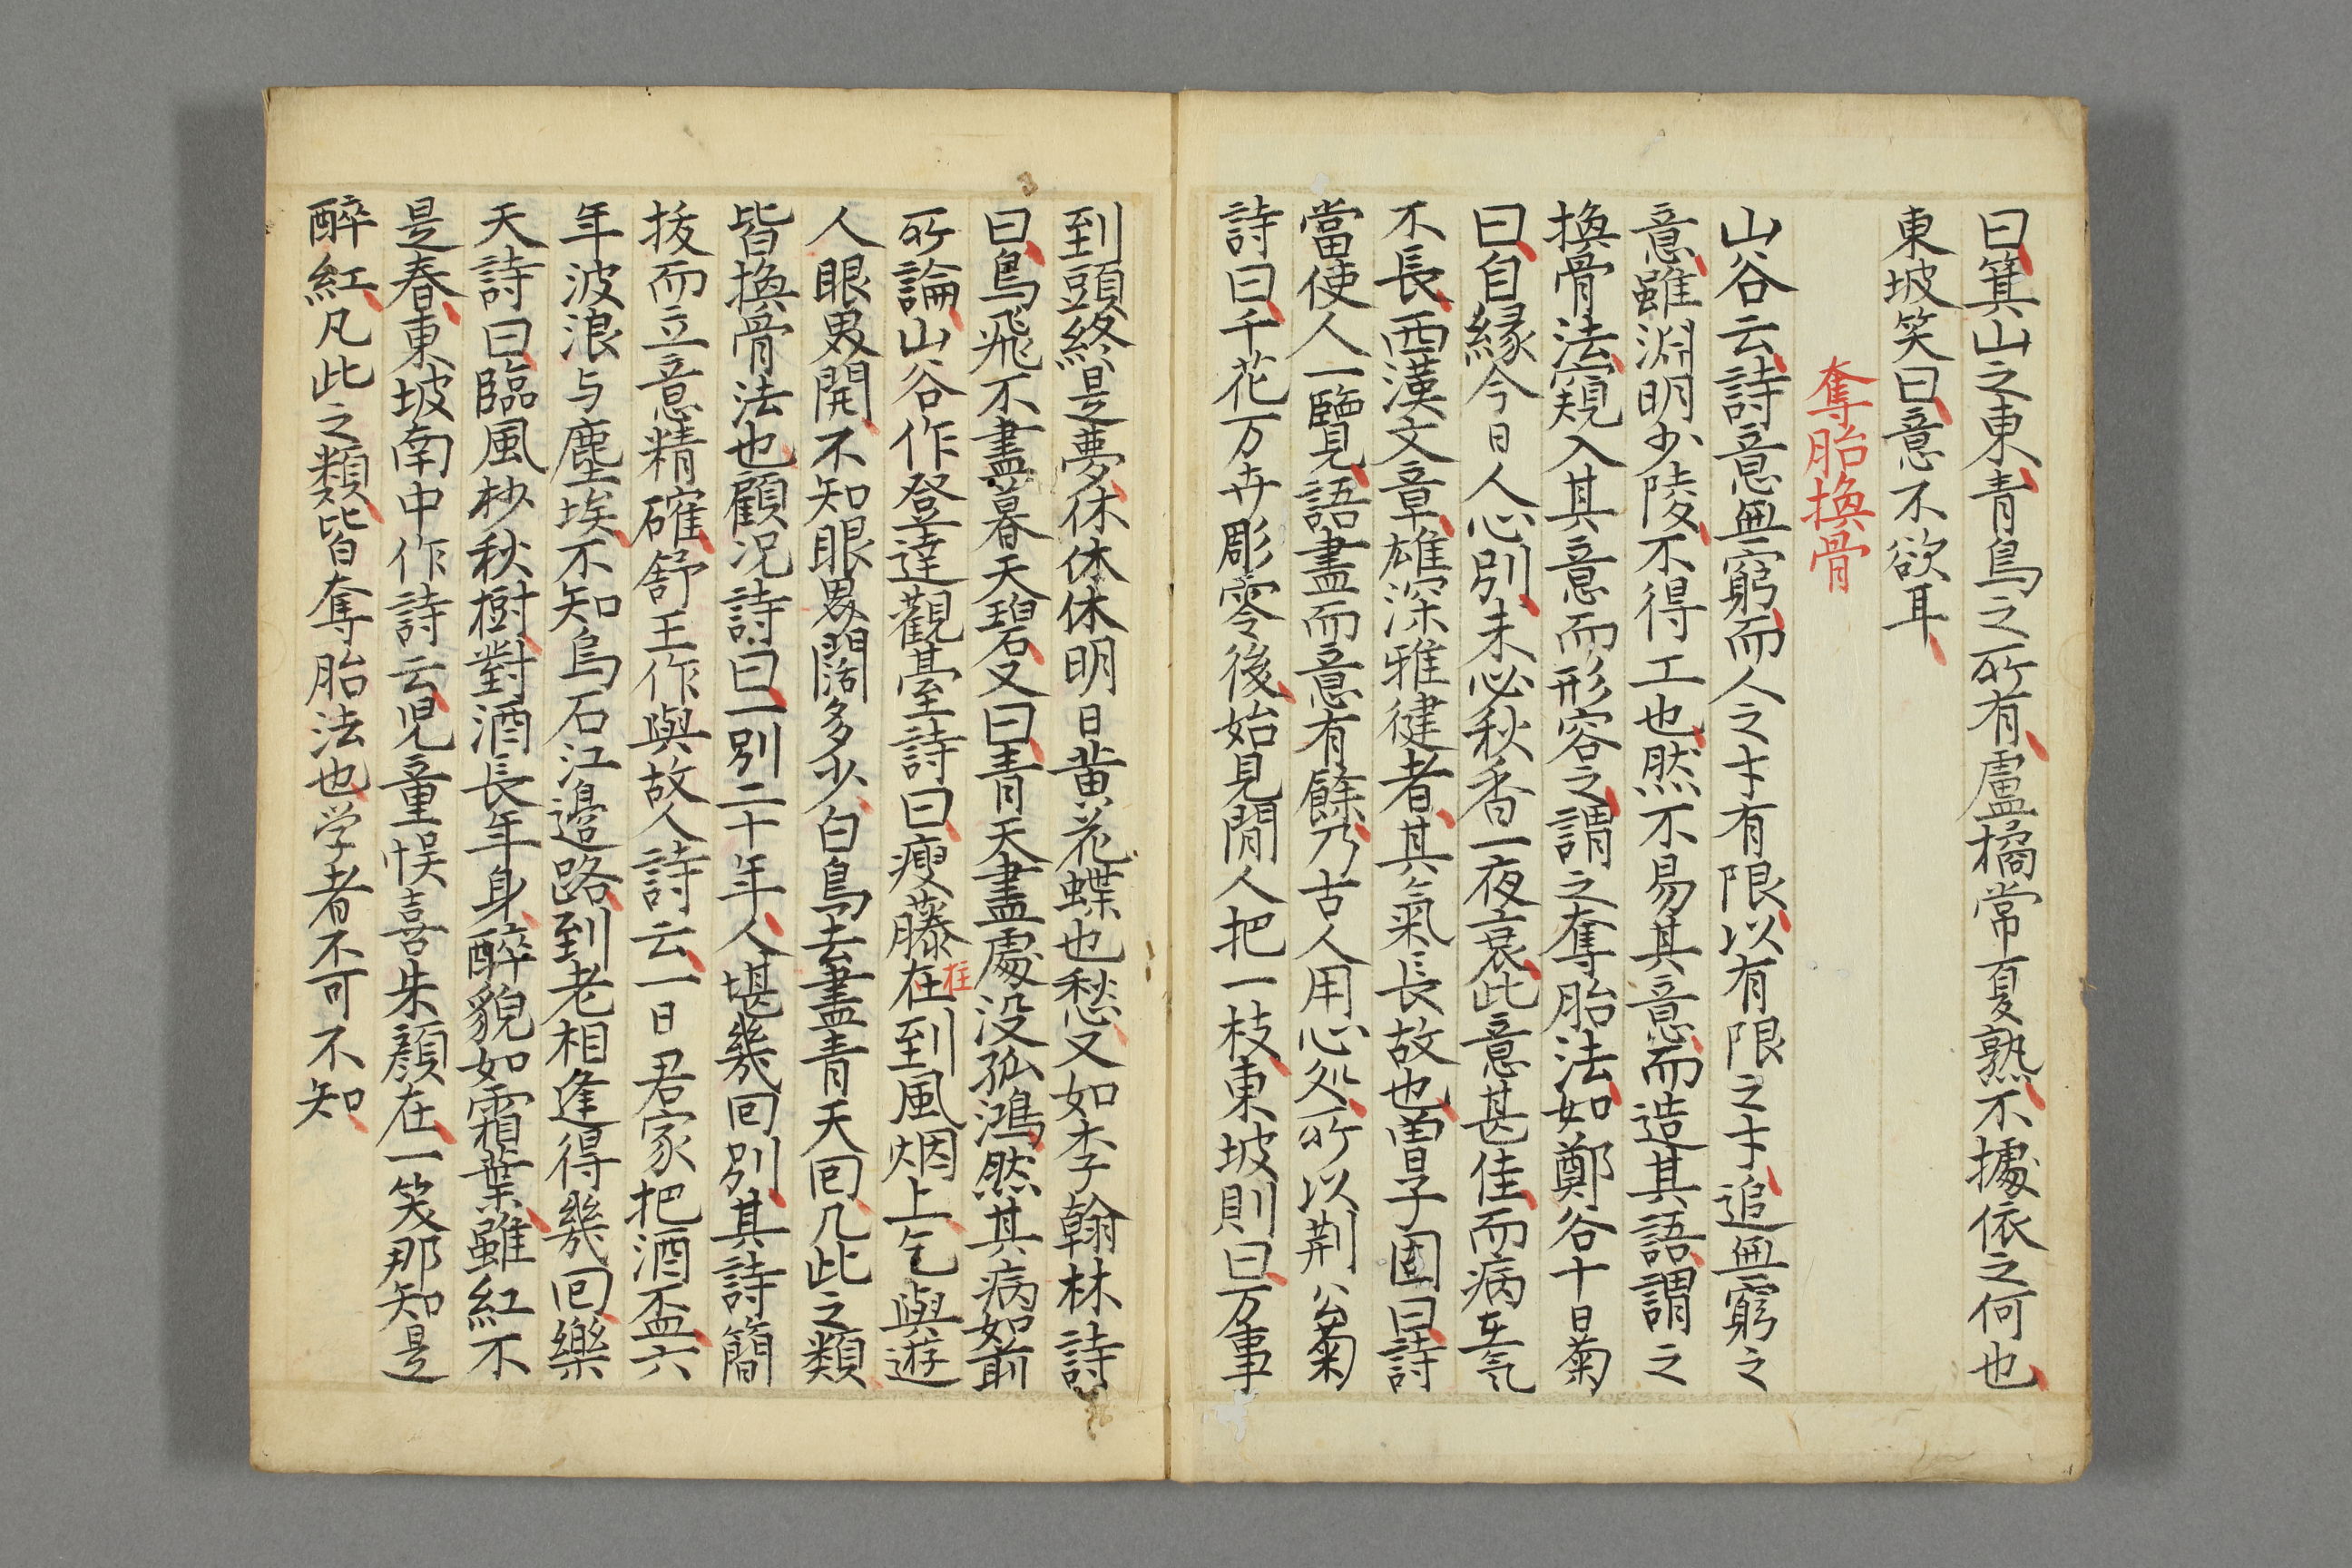 曰箕山之東青鳥之所有盧橘常夏熟不據依之何也
東坡笑曰意不欲耳
奪胎換骨
山谷云詩意無窮而人之才有限以有限之才追無窮之
意雖淵明少陵不得工也然不易其意而造其語謂之
換骨法窺入其意而形容之謂之奪胎法如鄭谷十日菊
曰自緣今日人心別未必秋香一夜衰此意甚佳而病在気
不長西漢文章雄深雅健者其氣長故也曽子固曰詩
當使人一覽語盡而意有餘乃古人用心処所以荆公菊
詩曰千花万卉彫零後始見閒人把一枝東坡則曰万事
到頭終是夢休休休明日黄花蝶也愁又如李翰林詩
曰鳥飛不盡暮天碧又曰青天盡處没孤鴻然其病如前
所論山谷作登達觀臺詩曰瘦藤在到風烟上乞與遊
拄
人眼界開不知眼界闊多少白鳥去盡青天回凡此之類
皆換骨法也顧况詩曰一別二十年人堪幾回別其詩簡
拔而立意精確舒王作與故人詩云一日君家把酒盃六
年波浪与塵埃不知烏石江邉路到老相逢得幾回樂
天詩曰臨風杪秋樹對酒長年身醉貌如霜葉雖紅不
是春東坡南中作詩云児童悞喜朱顔在一笑那知是
醉紅凡此之類皆奪胎法也学者不可不知